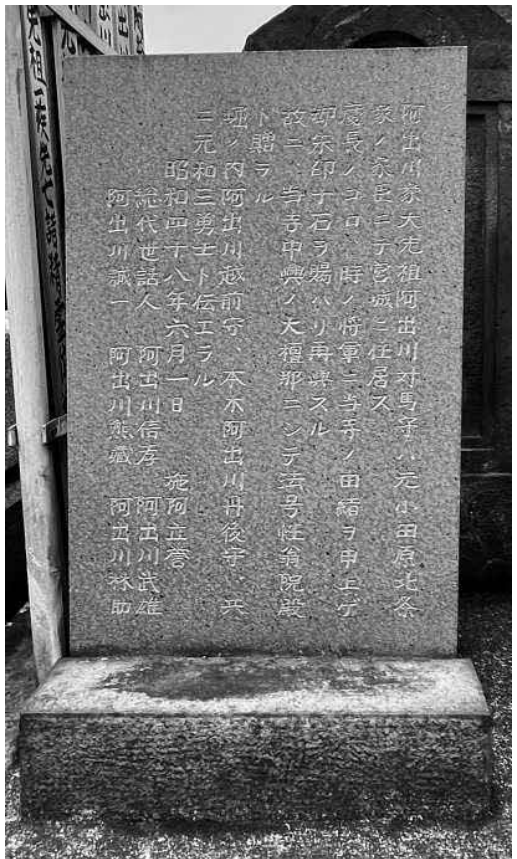 阿出川家大先祖阿出川対馬守ハ元小田原北条
家ノ家臣ニテ宮城ニ住居ス
慶長ノコロ、時ノ将軍ニ当寺ノ由緒ヲ申上ゲ
御朱印十石ヲ賜ハリ再興スル
故ニ、当寺中興ノ大檀那ニシテ法号性翁院殿
ト贈ラル
堀ノ内阿出川越前守、本木阿出川丹後守、共
ニ元和三勇士ト伝エラル
昭和四十八年六月一日 施阿立誉
総代世話人 阿出川信存 阿出川武雄
阿出川誠一 阿出川熊蔵 阿出川林助